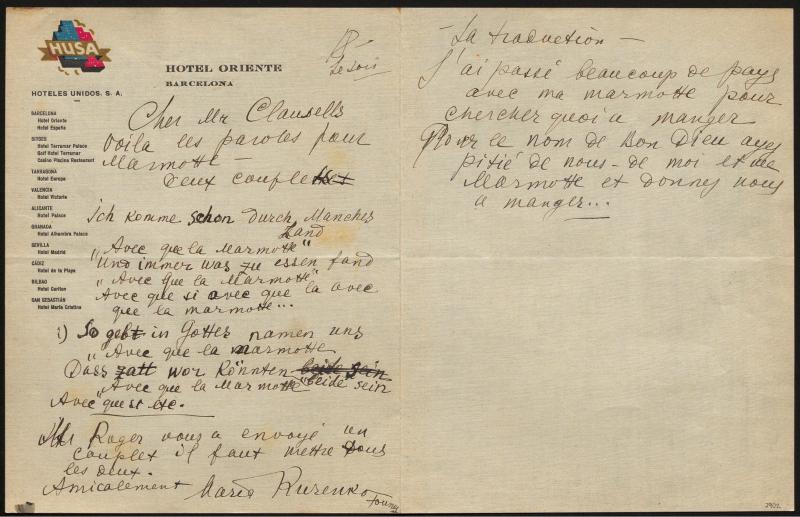 HUSA
HOTELES UNIDOS. S. A.
HOTEL ORIENTE
BARCELONA
BARCELONA
Hotel Oriente
Hotel España
SITGES
Hotel Terramar Palace
Golf Hotel Terramar
Casino Piscina Restaurant
TARRAGONA
Hotel Europa
VALENCIA
Hotel Victoria
ALICANTE
Hotel Palace
GRANADA
Hotel Alhambra Palace
SEVILLA
Hotel Madrid
CÁDIZ
Hotel de la Playa
BILBAO
Hotel Carlton
SAN SEBASTIÁN
Hotel María Cristina
Le soir
Cher Mr Clausells
Voilà les paroles pour
Marmotte —
Deux couplets
Ich komme schon durch Manches
Land
"Avec que la Marmotte"
Und immer was zu essen fand
"Avec que la Marmotte"
Avec que si avec que la avec
que la marmotte...
2) So gebt in Gottes namen uns
"Avec que la marmotte
Dass satt wor könnten beide sein
"Avec que la Marmotte" beide sein
Avec que si etc.
Mr Roger vous a envoyé un
couplet il faut mettre tous
les deux.
Amicalement Maria Kurenko
— La traduction —
J'ai passé beaucoup de pays
avec ma marmotte pour
chercher quoi a manger
Pour le nom de Bon Dieu ayez
pitié de nous - de moi et me
Marmotte et donnez nous
a manger...
2902